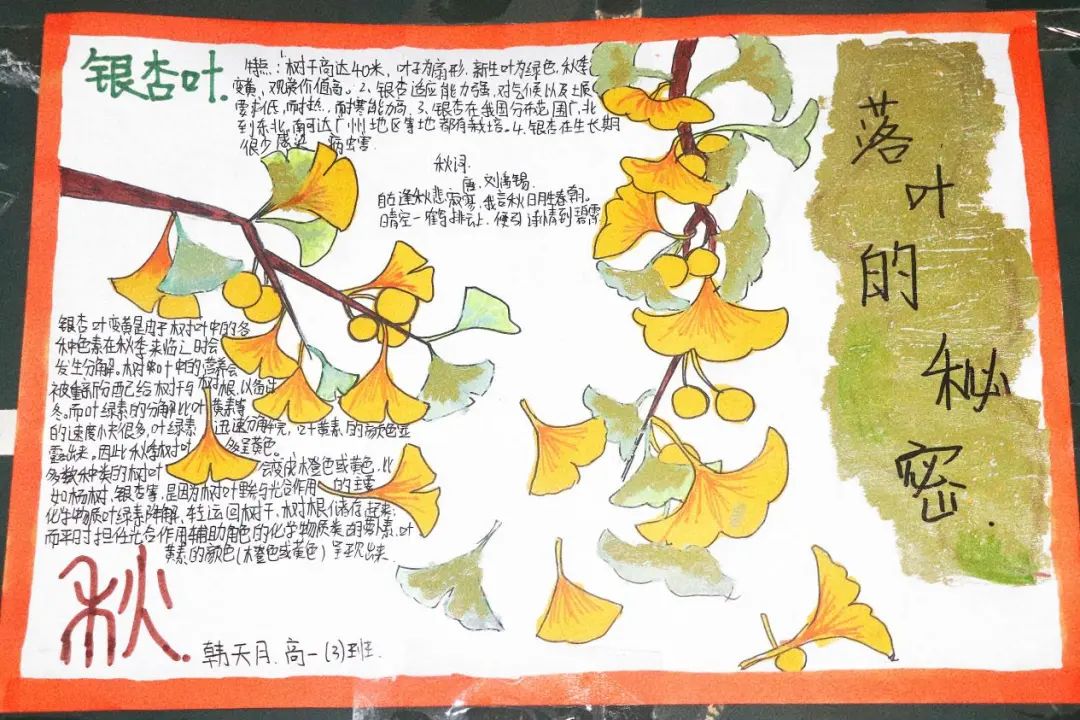 银杏叶.
特点：树干高达40米，叶子为扇形，新生叶为绿色，秋季
变黄，观赏价值高。2、银杏适应能力强，对气候以及土质
要求低，而耐热，耐寒能力高。3、银杏在我国分布范围广，北
到东北，南可达广州地区等地都有栽培。4、银杏在生长期
很少感染 病虫害.
秋词.
唐，刘禹锡.
自古逢秋悲寂寥，我言秋日胜春朝。
晴空一鹤排云上，便引诗情到碧霄
落叶的秘密.
银杏叶变黄是由于树叶中的各
种色素在秋季来临之时会
发生分解。树叶中的营养会
被重新分配给树干与树根，以备过
冬。而叶绿素的分解比叶黄素等
的速度快很多，叶绿素 迅速分解完，叶黄素的颜色显
露出来。因此秋季树叶 多呈黄色。
多数种类的树叶 会变成橙色或黄色，比
如杨树，银杏等，是因为树叶 参与光合作用 的主要
化学物质叶绿素降解，转运回树干，树根储存起来；
而平时担任光合作用辅助角色的化学物质类胡萝素，叶
黄素的颜色（橙色或黄色）呈现出来.
秋.
韩天月.高一(3)班.